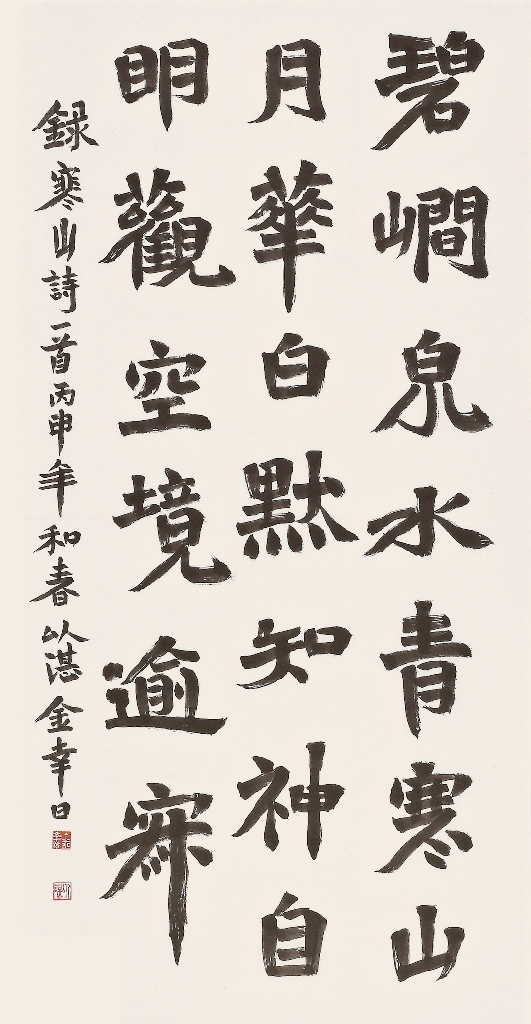 碧嵧泉水青寒山
月華白默知神自
明觀空境逾寂
錄寒山詩一首丙申年和春以湛金幸日